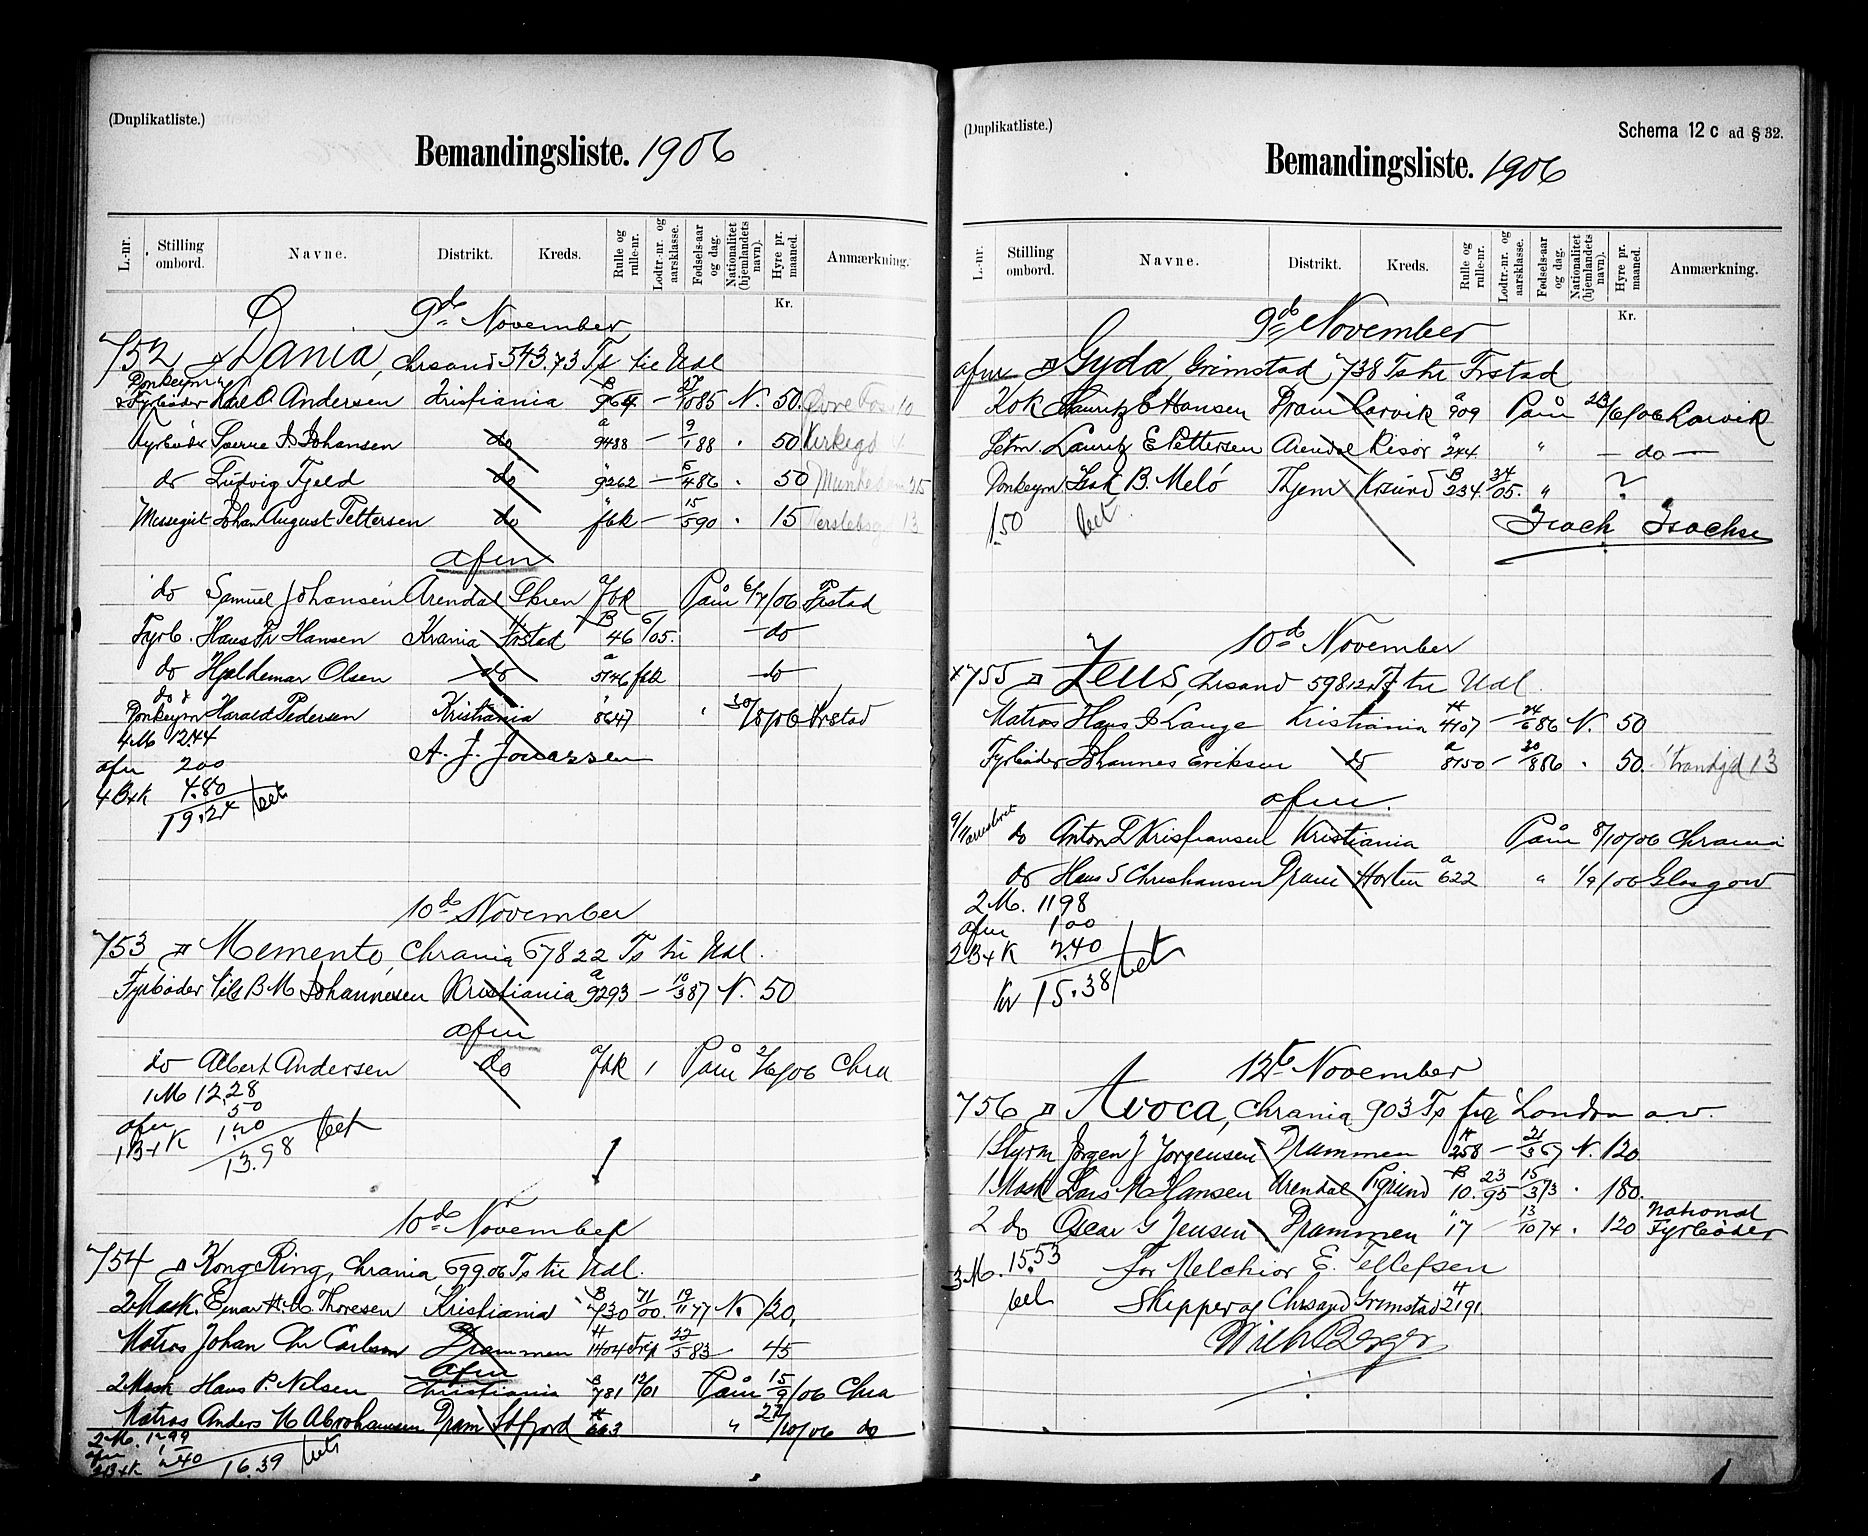 (Duplikatliste.)
Bemandingsliste. 1906
L.-nr. Stilling ombord. Navne. Distrikt. Kreds. Rulle og rulle-nr. Lodtr.-nr. og aarsklasse. Fødsels-aar og dag. Nationalitet (hjemlandets navn). Hyre pr. maaned. Anmærkning.
Kr.
9de November
752 Dania, Chrsand 543.73 Ts til Udl
Donkeym
& Fyrbøder Karl O. Andersen Kristiania 964 — 27/10 85 N. 50. Øvre Foss 10
Fyrbøder Sverre J. Johansen do a 9488 — 9/1 88 " 50 Kirkegd
do Ludvig Fjeld do " 9262 — 5/4 86 " 50 Munkedam 25
Messegut Johan August Pettersen do fbk — 15/5 90 " 15 13
afm
do Samuel Johansen Arendal Skien a fbk Paam 6/7/06 Frstad
Fyrb. Hans Fr Hansen Krania Frstad B 46 6/05. — do —
do Hjaldemar Olsen do a 5746 fbk do
do &
Donkeym Harald Pedersen Kristiania " 8647 " 30/8/06 Frstad
4 M 12.44
afm 200
A. J. Jonassen
4 B+K 4.80
19.24 bet
10de November
753 Memento, Chrania 678 22 Ts til Udl.
Fyrbøder Vilh B M Johannesen Kristiania a 9293 — 10/3 87 N. 50
afm
do Albert Andersen do a fbk Paam 2/6/06 Chra
1 M 12.28
afm 50
1 B+K 1.20
13.98 bet
10de November
754 Kong Ring, Chrania, 699.06 Ts til Udl.
2 Mask. Einar H. M Thoresen Kristiania B 730 71/00. 19/11 77 N. 120.
Matros Johan Chr Carlson Drammen H 1404 frip 22/5 83 45
afm
2 Mask Hans P. Nilsen Christiania B 781 12/01 Paam 15/9/06 Chra
Matros Anders M Abrahamsen Dram Sdfjord H 663 " 22/10/06 do
2 M. 12.99
afm 1
2 B+K 2.40
16.39 bet
(Duplikatliste.)
Schema 12 c ad § 32.
Bemandingsliste. 1906
L.-nr. Stilling ombord. Navne. Distrikt. Kreds. Rulle og rulle-nr. Lodtr.-nr. og aarsklasse. Fødsels-aar og dag. Nationalitet (hjemlandets navn). Hyre pr. maaned. Anmærkning.
Kr.
9de November
afm Gyda, Grimstad, 738 Ts til Frstad
Kok Lauritz C Hansen Dram Larvik a 909 Paam 23/6/06 Larvik
Letm. Lauritz E Pettersen Arendal Risør " 244 " — do —
Donkeym Isak B. Melö Thjem Krsund B 234. 34/05. " ?
1.50 bet
Isach Isachsen
10de November
755 Zeus, Chrsand 598 12 Ts til Udl.
Matros Hans J Lange Kristiania H 4407 — 24/6 86 N. 50
Fyrbøder Johannes Eriksen do a 8150 — 20/8 86 " 50. Strandgd 13
afm.
do Anton L Kristiansen Kristiania Paam 8/10/06 Chrania
do Hans S Christiansen Dram Horten a 622 " 1/9/06 Glasgow
2 M. 11 98
afm 1 00
2 B+K 2.40
Kr 15.38 bet
12te November
756 Avoca, Chrania 903 Ts fra London a.v.
1 Styrm Jørgen J Jørgensen Drammen H 258 — 21/3 67 N. 120
1 Mask Lars M Hansen Arendal Pgrund B 10. 23/95 15/3 73 " 180.
2 do Oscar G Jensen Drammen " 17 — 13/10 74 " 120 National Fyrbøder
3 M. 15.53
bet
for Melchior E. Tellefsen
Skipper af Chrsand Grimstad H 2191.
Wilh Berger